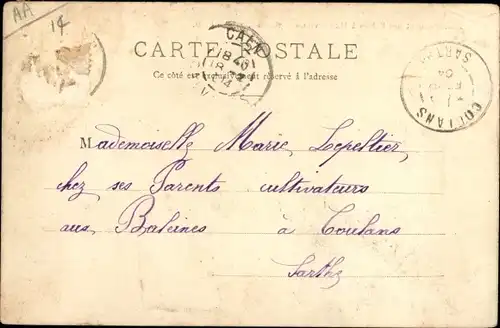 AA
1€
CARTE POSTALE
CAEN
18 40
Ce côté est exclusivement réservé à l'adresse
COULANS
SARTHE
Mademoiselle Marie Lepeltier,
chez ses Parents cultivateurs
aux Baleines à Coulans
Sarthe